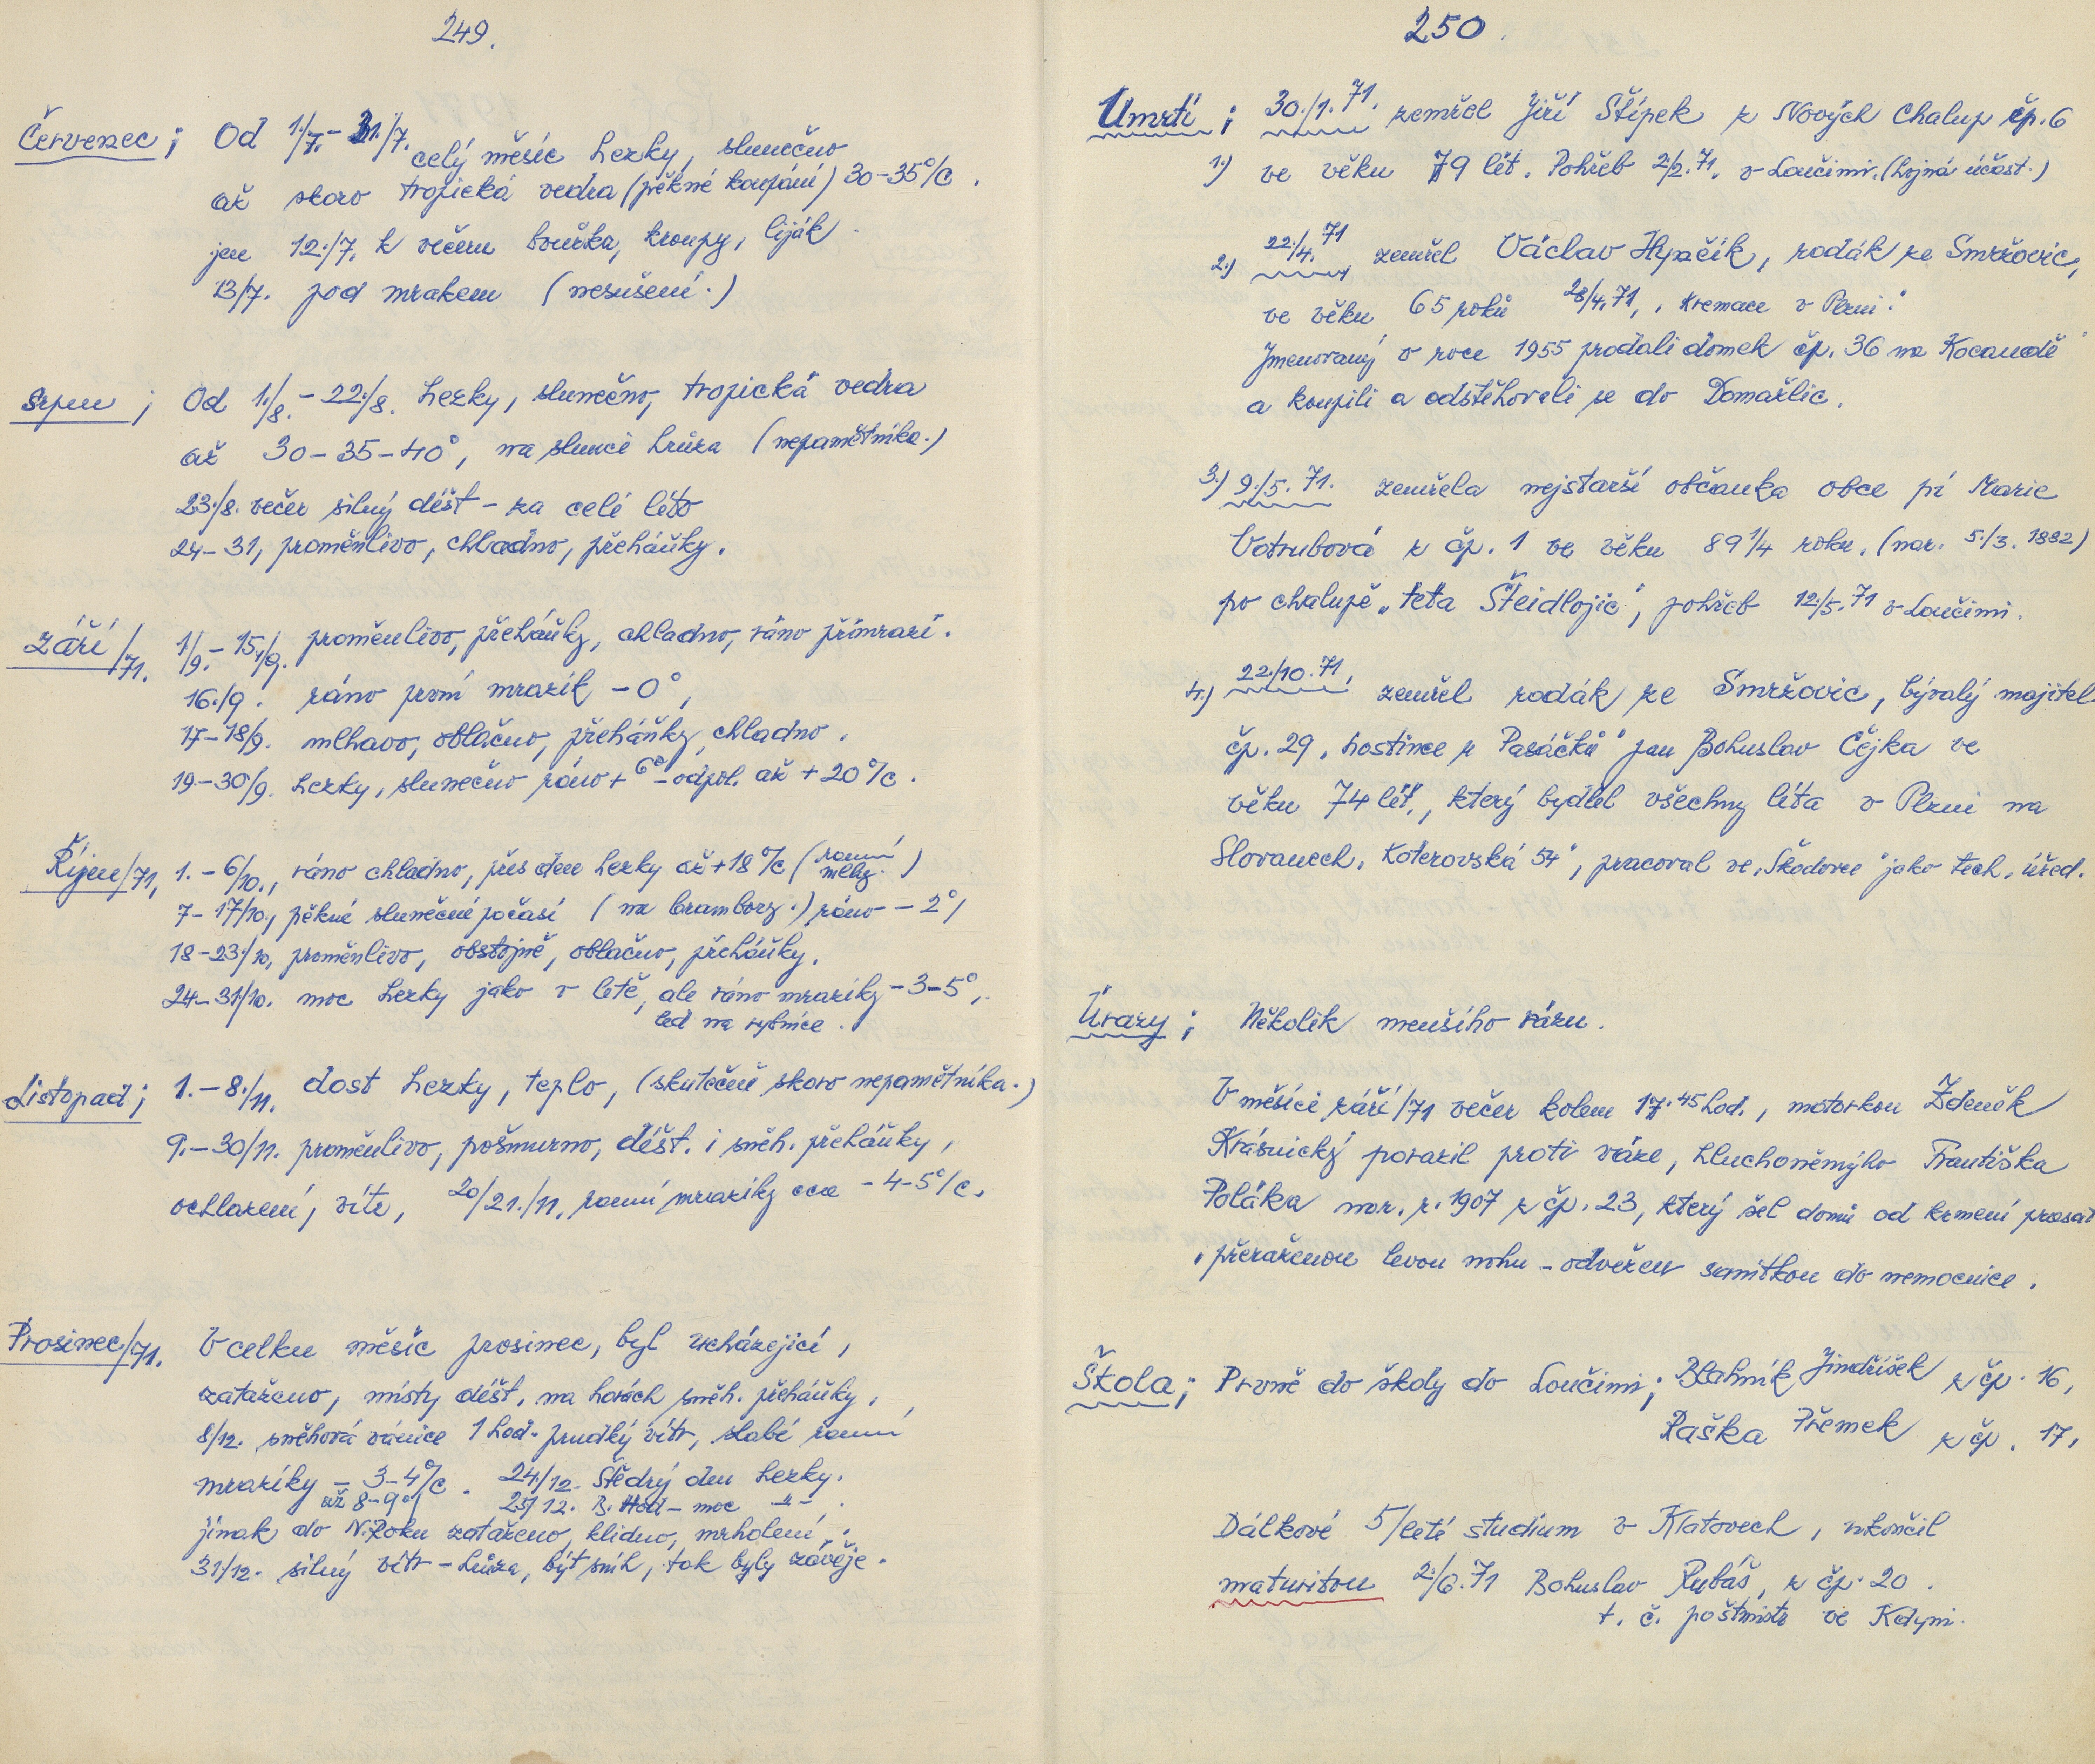 249.
Červenec; Od 1./7. - 31./7. celý měsíc hezky, slunečno
až skoro tropická vedra (pěkné koupání) 30-35°/c.
jen 12./7. k večeru bouřka, kroupy, liják.
13/7. pod mrakem (nesušení.)
Srpen; Od 1./8. - 22./8. hezky, slunečno, tropická vedra
až 30-35-40°, na slunci hrůza (nepamětníka.)
23./8. večer silný déšt - za celé léto
24-31, proměnlivo, chladno, přeháňky.
Září/71. 1/9. - 15./9. proměnlivo, přeháňky, chladno, ráno přímrazí.
16./9. ráno první mrazík -0°,
17-18/9. mlhavo, oblačno, přeháňky, chladno.
19.-30/9. hezky, slunečno ráno +6° - odpol. až +20°/c.
Říjen/71, 1. - 6/10., ráno chladno, přes den hezky až +18°/c (ranní mlhy.)
7-17/10., pěkné slunečné počasí (na brambory.) ráno -2°,
18-23./10, proměnlivo, obstojně, oblačno, přeháňky.
24-31/10. moc hezky jako v létě, ale ráno mrazíky -3-5°,
led na rybníce.
Listopad; 1. - 8./11. dost hezky, teplo, (skutečně skoro nepamětníka.)
9. - 30/11. proměnlivo, pošmurno, déšt. i sněh. přeháňky,
ochlazení, vítr, 20/21./11, ranní mrazíky cca -4-5°/c.
Prosinec/71. V celku měsíc prosinec, byl ucházející,
zataženo, místy déšt, na horách sněh. přeháňky,
8/12. sněhová vánice 1 hod. prudký vítr, slabé ranní
mrazíky -3-4°/c. 24/12. Štědrý den hezky.
až 8-9° 25/12. B. Hod - moc -"-.
jinak do N. Roku zataženo, klidno, mrholení,
31/12. silný vítr - hrůza, být sníh, tak byly závěje.
250.
Úmrtí; 30./1. 71. zemřel Jiří Štípek z Nových Chalup čp. 6
1.) ve věku 79 lét. Pohřeb 2./2. 71. v Loučimi. (hojná účast.)
2.) 22./4. 71 zemřel Václav Hynčík, rodák ze Smržovic,
ve věku 65 roků 28/4. 71,, kremace v Plzni.
Jmenovaný v roce 1955 prodali domek čp. 36 na Kocandě
a koupili a odstěhovali se do Domažlic.
3.) 9./5. 71. zemřela nejstarší občanka obce pí Marie
Votrubová z čp. 1 ve věku 89 1/4 roku. (nar. 5./3. 1882)
po chalupě "teta Šteidlojic", pohřeb 12./5. 71 v Loučimi.
4.) 22./10. 71, zemřel rodák ze Smržovic, bývalý majitel
čp. 29, hostince u "Pasáčků" pan Bohuslav Čejka ve
věku 74 lét., který bydlel všechny léta v Plzni na
Slovanech, Koterovská 54", pracoval ve "Škodovce" jako tech. úřed.
Úrazy; Několik menšího rázu.
V měsíci září/71 večer kolem 17.45 hod., motorkou Zdeněk
Krásnický porazil proti váze, hluchoněmýho Františka
Poláka nar. r. 1907 z čp. 23, který šel domů od krmení prasat
, přeraženou levou nohu - odvežen sanitkou do nemocnice.
Škola; Prvně do školy do Loučimi; Blahník Jindříšek z čp. 16,
Raška Přemek z čp. 17,
Dálkové 5/leté studium v Klatovech, ukončil
maturitou 2./6. 71 Bohuslav Rubáš, z čp. 20.
t. č. poštmistr ve Kdyni.